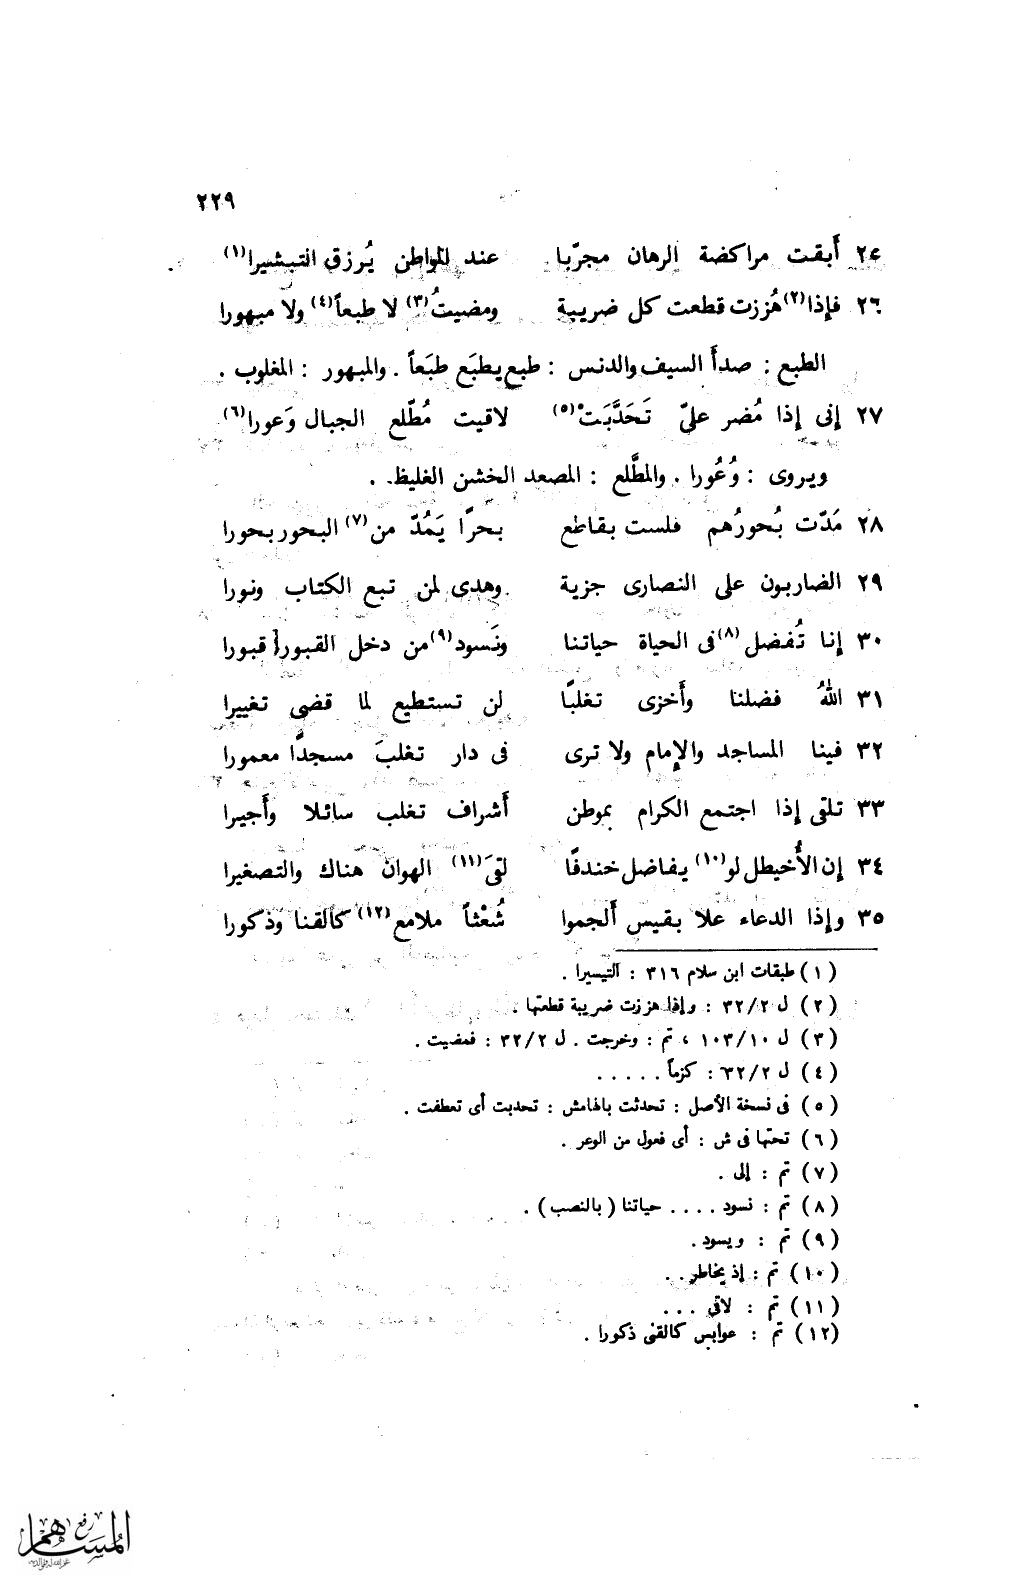 ٢٢٩
٢٤ أَبقت مراكضة الرهان مجرّبا عند المواطن يُرزق التبشيرا(١)
٢٦ فإذا(٢) هُززت قطعت كل ضريبة ومضيتُ(٣) لا طبعاً(٤) ولا مبهورا
الطبع : صدأ السيف والدنس : طبع يطبَع طبَعاً . والمبهور : المغلوب .
٢٧ إنى إذا مُضر علىّ تَحَدَّبَتْ(٥) لاقيت مُطّلع الجبال وَعورا(٦)
ويروى : وُعُورا . والمطَّلع : المصعد الخشن الغليظ .
٢٨ مَدّت بُحورُهم فلست بقاطع بحرًا يَمُدّ من(٧) البحور بحورا
٢٩ الضاربون على النصارى جزية وهدى لمن تبع الكتاب ونورا
٣٠ إنا تُفضل(٨) فى الحياة حياتنا ونَسود(٩) من دخل القبور قبورا
٣١ اللهُ فضلنا وأَخزى تغلبًا لن تستطيع لما قضى تغييرا
٣٢ فينا المساجد والإمام ولا ترى فى دار تغلبَ مسجدًا معمورا
٣٣ تلقى إذا اجتمع الكرام بموطن أَشراف تغلب سائلا وأَجيرا
٣٤ إن الأُخيطل لو(١٠) يفاضل خندفًا لقىَ(١١) الهوان هناك والتصغيرا
٣٥ وإذا الدعاء علا بقيس أَلجموا شُعْثاً ملامع(١٢) كالقنا وذكورا
(١) طبقات ابن سلام ٣١٦ : التيسيرا .
(٢) ل ٣٢/٢ : وإذا هززت ضريبة قطعتها .
(٣) ل ١٠٣/١٠ ، تم : وخرجت . ل ٣٢/٢ : فمضيت .
(٤) ل ٣٢/٢ : كزماً . . . . .
(٥) فى نسخة الأصل : تحدثت بالهامش : تحدبت أى تعطفت .
(٦) تحتها فى ش : أى فعول من الوعر .
(٧) تم : إلى .
(٨) تم : نسود . . . . حياتنا ( بالنصب ) .
(٩) تم : ويسود .
(١٠) تم : إذ يخاطر . .
(١١) تم : لاقى . . .
(١٢) تم : عوابس كالقنى ذكورا .